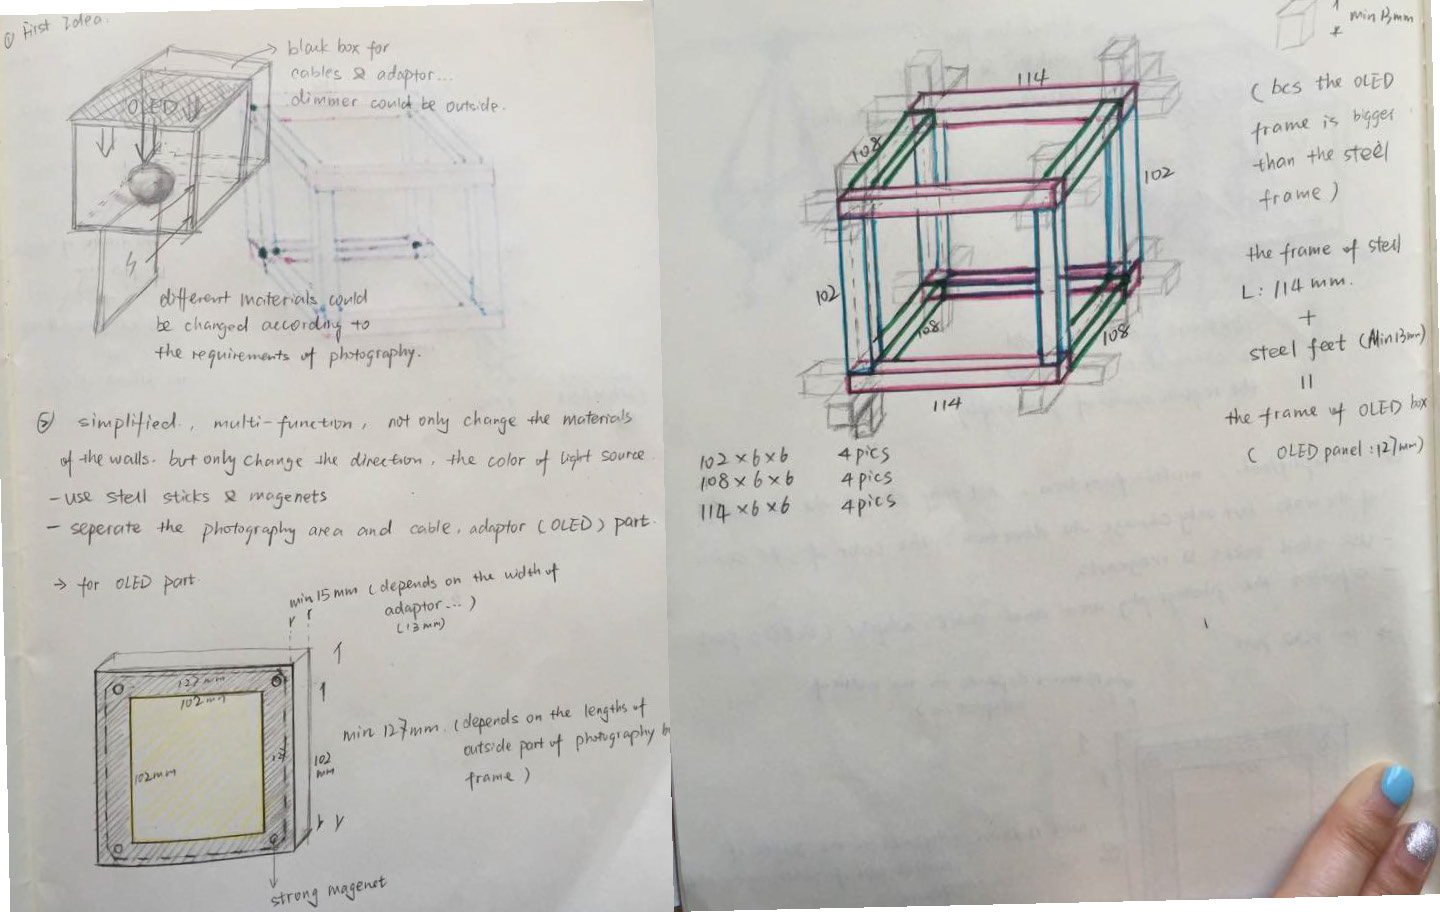 ① First Idea.
black box for
cables & adaptor...
dimmer could be outside.
OLED
different materials could
be changed according to
the requirements of photography.
⑤ simplified, multi-function, not only change the materials
of the walls. but only change the direction, the color of light source
- use stell sticks & magenets
- seperate the photography area and cable, adaptor (OLED) part.
→ for OLED part
min 15 mm (depends on the width of
adaptor...)
(13mm)
127 mm
102 mm
102 mm
127
102
mm
min 127mm. (depends on the lengths of
outside part of photography
frame)
strong magenet
min 13mm
(bcs the OLED
frame is bigger
than the steel
frame)
114
108
102
102
108
108
114
the frame of stell
L: 114 mm.
+
steel feet (Min13mm)
=
the frame of OLED box
( OLED panel: 127mm)
102 × 6 × 6 4 pics
108 × 6 × 6 4 pics
114 × 6 × 6 4 pics